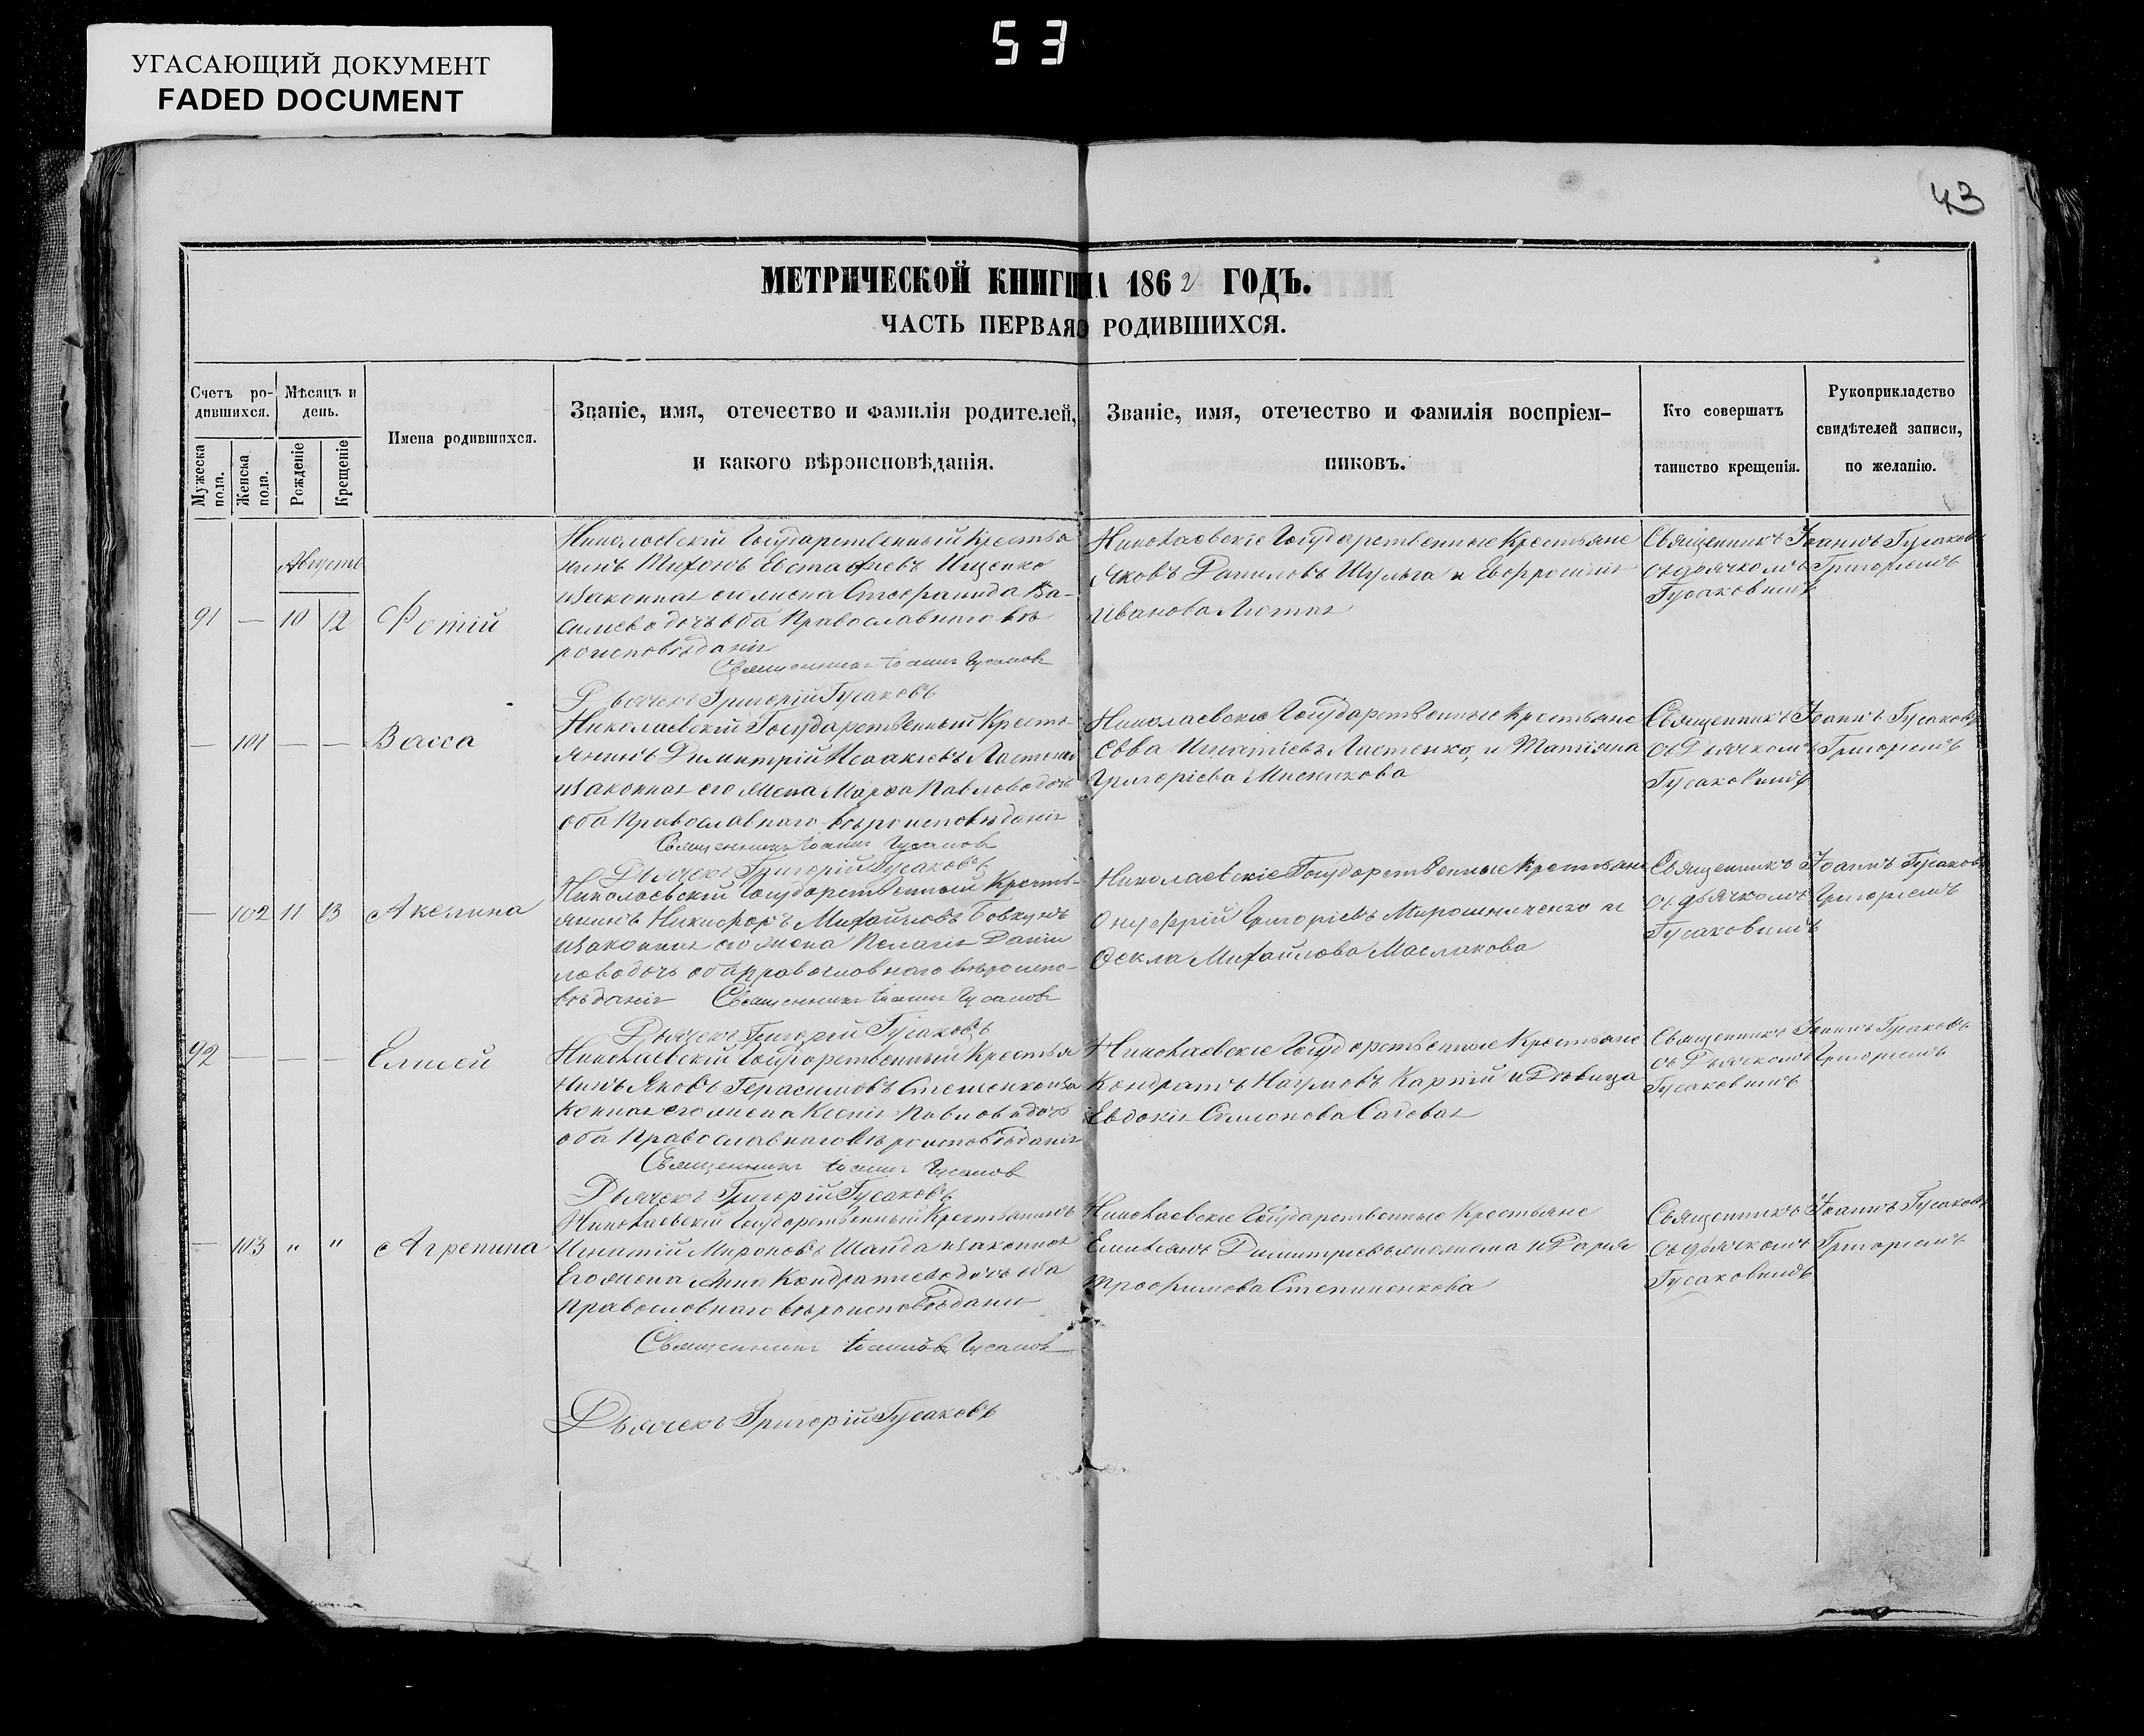 53
УГАСАЮЩИЙ ДОКУМЕНТ
FADED DOCUMENT
43
МЕТРИЧЕСКОЙ КНИГИ НА 1862 ГОДЪ.
ЧАСТЬ ПЕРВАЯ О РОДИВШИХСЯ.
Счетъ ро-
дившихся.
Мужеска пола.
Женска пола.
Мѣсяцъ и
день.
Рожденіе
Крещеніе
Имена родившихся.
Званіе, имя, отечество и фамилія родителей,
и какого вѣроисповѣданія.
Званіе, имя, отечество и фамилія воспріем-
никовъ.
Кто совершатъ
таинство крещенія.
Рукоприкладство
свидѣтелей записи,
по желанію.
Августъ
91 — 10 12 Фотій
Николаевскій Государственный Крестья
нинъ Тихонъ Евстафіевъ Ищенко
и законная его жена Стефанида Ва-
силіева дочь оба Православнаго вѣ
роисповѣданія
Священникъ Іоаннъ Гусаковъ
Дьячекъ Григорій Гусаковъ
Николаевскіе Государственные Крестьяне
Яковъ Даниловъ Шульга и Евфросинія
Иванова Лютая
Священникъ Іоаннъ Гусаковъ
съ дьячкомъ Григоріемъ
Гусаковимъ
— 101 — — Васса
Николаевскій Государственный Кресть-
янинъ Димитрій Исаакіевъ Ластенко
и законная его жена Марфа Павлова дочь
оба Православнаго вѣроисповѣданія
Священникъ Іоаннъ Гусаковъ
Дьячекъ Григорій Гусаковъ
Николаевскіе Государственные Крестьяне
Савва Игнатіевъ Ластенко, и Татіяна
Григоріева Мисникова
Священникъ Іоаннъ Гусаковъ
съ Дьячкомъ Григоріемъ
Гусаковимъ
— 102 11 13 Аксенина
Николаевскій Государственный Кресть-
янинъ Никифоръ Михайловъ Бовкунъ
и законная его жена Пелагія Дани
лова дочь оба православнаго вѣроиспо-
вѣданія Священникъ Іоаннъ Гусаковъ
Дьячекъ Григорій Гусаковъ
Николаевскіе Государственные Крестьяне
Онуфрій Григоріевъ Мирошниченко и
Фекла Михайлова Маслакова
Священникъ Іоаннъ Гусаковъ
съ дьячкомъ Григоріемъ
Гусаковимъ
92 — — — Елисей
Николаевскій Государственный Крестья
нинъ Яковъ Герасимовъ Стешенко и за
конная его жена Ксенія Павлова дочь
оба Православнаго вѣроисповѣданія
Священникъ Іоаннъ Гусаковъ
Дьячекъ Григорій Гусаковъ
Николаевскіе Государственные Крестьяне
Кондратъ Наумовъ Карпій и Дѣвица
Евдокія Симонова Садовая
Священникъ Іоаннъ Гусаковъ
съ Дьячкомъ Григоріемъ
Гусаковимъ
— 103 " " Агрепина
Николаевскій Государственный Крестьянинъ
Игнатій Мироновъ Шайда и законная
Его жена Анна Кондратіева дочь оба
православнаго вѣроисповѣданія
Священникъ Іоаннъ Гусаковъ
Дьячекъ Григорій Гусаковъ
Николаевскіе Государственные Крестьяне
Емиліанъ Димитріевъ и Дарія
Трофимова Степиненкова
Священникъ Іоаннъ Гусаковъ
съ дьячкомъ Григоріемъ
Гусаковимъ